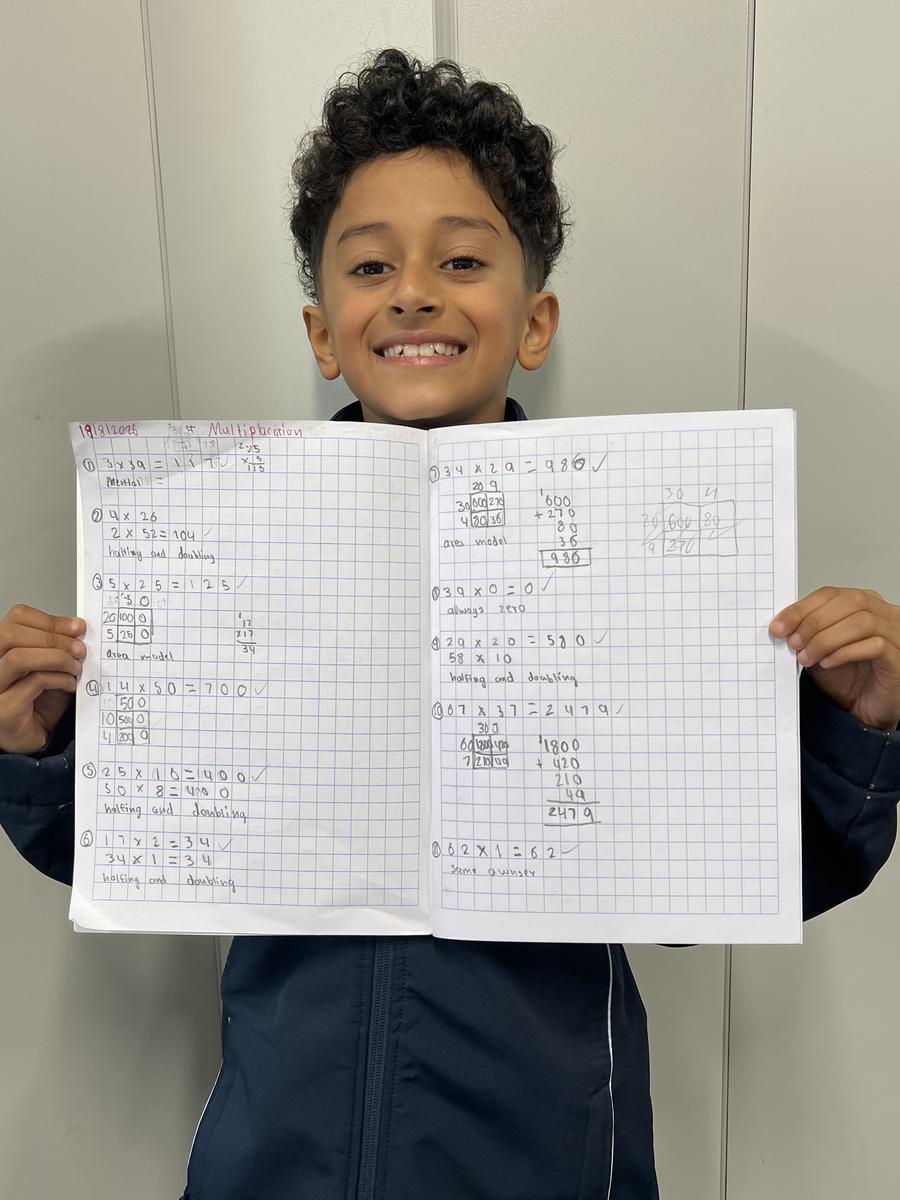 19/8/2026 Multiplacation
① 3 x 39 = 117
Mental =
25
x 5
② 4 x 26
2 x 52 = 104
halfing and doubling
③ 5 x 25 = 125
5 0
20 100 0
5 25 0
area model
1
17
x17
34
④ 14 x 50 = 700
50 0
10 500 0
4 200 0
⑤ 25 x 16 = 400
50 x 8 = 400
halfing and doubling
⑥ 17 x 2 = 34
34 x 1 = 34
halfing and doubling
⑦ 34 x 29 = 986
20 9
30 600 270
4 80 36
area model
1
600
+ 270
80
36
986
30 4
20 600 80
9 270
⑧ 39 x 0 = 0
allways zero
⑨ 29 x 20 = 580
58 x 10
halfing and doubling
⑩ 67 x 37 = 2479
60 1800 420
7 210 49
1
1800
+ 420
210
49
2479
62 x 1 = 62
same awnser